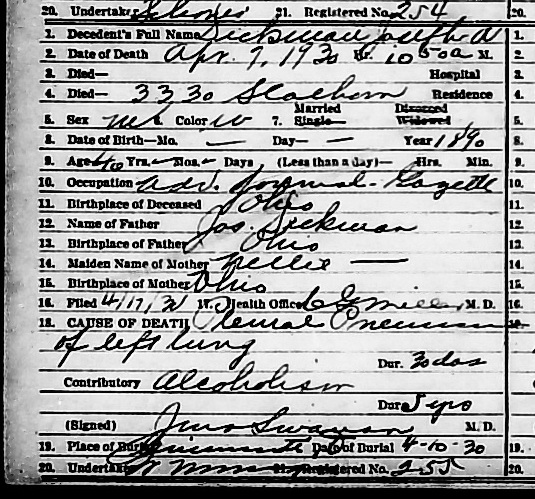 20. Undertaker 21. Registered No. 254 20.
1. Decedent's Full Name Dickman Joseph A 1.
2. Date of Death Apr. 9, 1930 Hr. 10 50a M. 2.
3. Died— Hospital 3.
4. Died— 3330 Residence 4.
5. Sex M 6. Color W 7. Married Single— Divorced Widowed 5.
8. Date of Birth—Mo. — Day— — Year 1890 8.
9. Age 40 Yrs. — Mos. — Days (Less than a day)— Hrs. Min. 9.
10. Occupation Adv. Journal-Gazette 10.
11. Birthplace of Deceased Ohio 11.
12. Name of Father Jos. Dickman 12.
13. Birthplace of Father Ohio 13.
14. Maiden Name of Mother Nellie — 14.
15. Birthplace of Mother Ohio 15.
16. Filed 4/17/30 17. Health Officer Miller M. D. 16.
18. CAUSE OF DEATH Pleural Pneumonia
of left lung
Dur. 30 das
Contributory Alcoholism
Dur. 5 yrs
(Signed) Swanson M. D.
19. Place of Burial Date of Burial 4-10-30 19.
20. Undertaker 21. Registered No. 255 20.